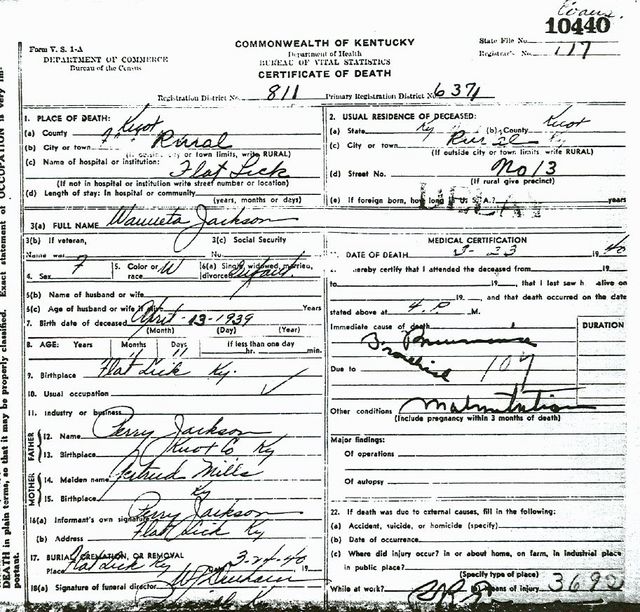 10440
Form V. S. 1-A
DEPARTMENT OF COMMERCE
Bureau of the Census
COMMONWEALTH OF KENTUCKY
Department of Health
BUREAU OF VITAL STATISTICS
CERTIFICATE OF DEATH
State File No.
Registrar's No. 117
Registration District No. 811 Primary Registration District No. 6371
1. PLACE OF DEATH:
(a) County Knox
(b) City or town Rural
(If outside city or town limits, write RURAL)
(c) Name of hospital or institution: Flat Lick
(If not in hospital or institution write street number or location)
(d) Length of stay: In hospital or community
(years, months or days)
2. USUAL RESIDENCE OF DECEASED:
(a) State Ky (b) County Knox
(c) City or town Rural
(If outside city or town limits, write RURAL)
(d) Street No. No 13
(If rural give precinct)
(e) If foreign born, how long in U. S. A.? years
3(a) FULL NAME Jackson
3(b) If veteran,
Name war
3(c) Social Security
No.
4. Sex F
5. Color or race W
6(a) Single, widowed, married, divorced Infant
6(b) Name of husband or wife
6(c) Age of husband or wife if alive Years
7. Birth date of deceased April-13-1939
(Month) (Day) (Year)
8. AGE: Years Months Days If less than one day
11 11 hr. min.
9. Birthplace Flat Lick Ky.
10. Usual occupation
11. Industry or business
FATHER
12. Name Perry Jackson
13. Birthplace Knox Co Ky
MOTHER
14. Maiden name Mills
15. Birthplace Ky
16(a) Informant's own signature Perry Jackson
(b) Address Flat Lick Ky
17. BURIAL, CREMATION, OR REMOVAL
Place Flat Lick Ky 3-24-40 19
18(a) Signature of funeral director
MEDICAL CERTIFICATION
DATE OF DEATH 3-23 1940
hereby certify that I attended the deceased from 19
to 19 , that I last saw h alive on
19 , and that death occurred on the date
stated above at 4 P M.
Immediate cause of death DURATION
Pneumonia
Due to 107
Other conditions Malnutrition
(Include pregnancy within 3 months of death)
Major findings:
Of operations
Of autopsy
22. If death was due to external causes, fill in the following:
(a) Accident, suicide, or homicide (specify)
(b) Date of occurrence
(c) Where did injury occur? in or about home, on farm, in industrial place
in public place?
(Specify type of place)
While at work? Means of injury
DEATH in plain terms, so that it may be properly classified. Exact statement of OCCUPATION is very im-
portant.